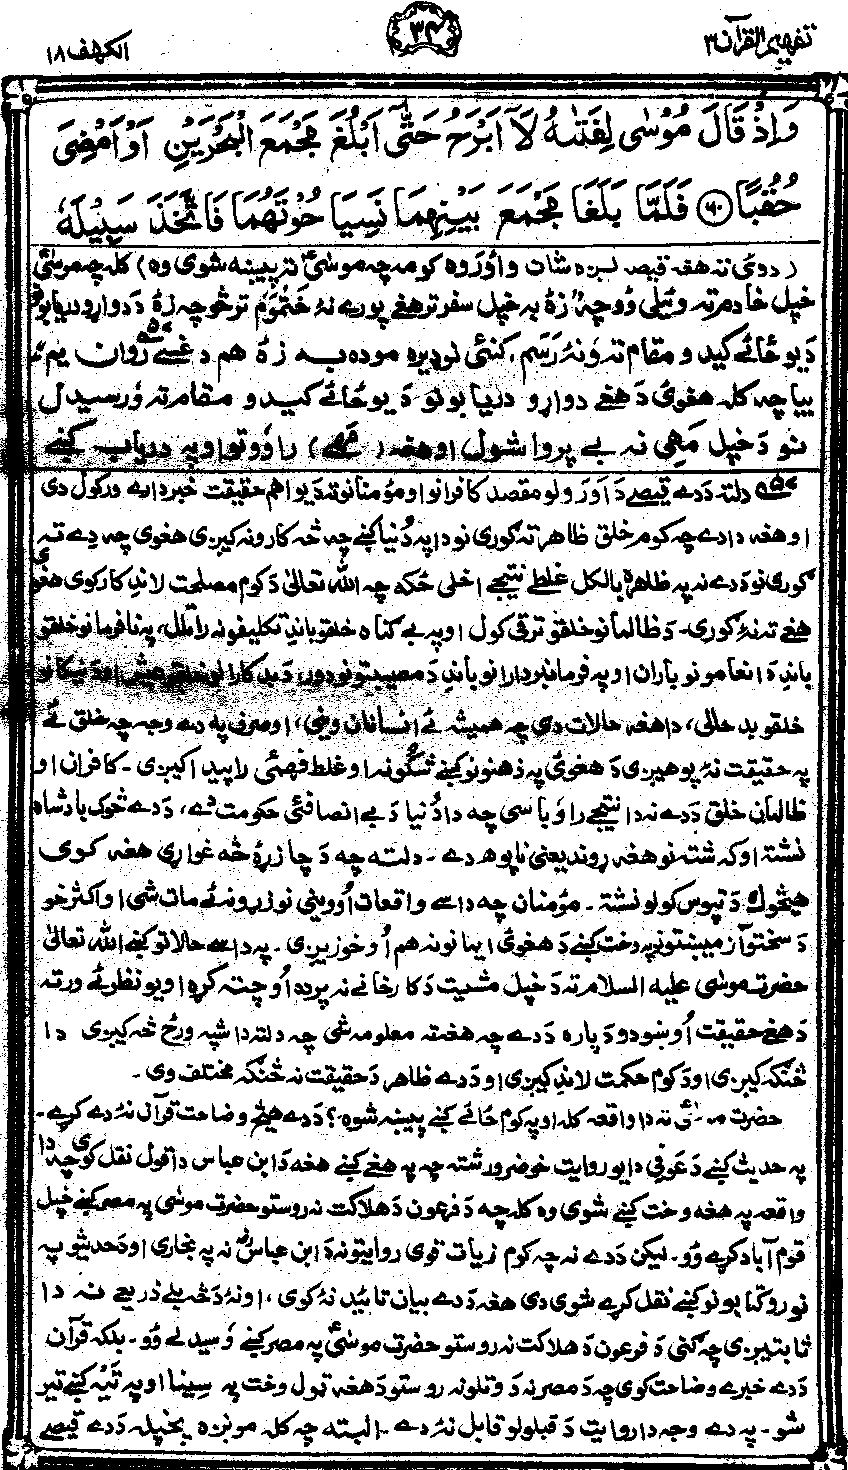 تفهیم القرآن ۳ ۳۴ الکهف ۱۸
وَاِذْ قَالَ مُوْسٰى لِفَتٰىهُ لَآ اَبْرَحُ حَتّٰۤى اَبْلُغَ مَجْمَعَ الْبَحْرَيْنِ اَوْ اَمْضِىَ
حُقُبًا ﴿۶۰﴾ فَلَمَّا بَلَغَا مَجْمَعَ بَيْنِهِمَا نَسِيَا حُوْتَهُمَا فَاتَّخَذَ سَبِيْلَهٗ
( دوئ ته هغه قیصه لږه شان واوروه کومه چه موسیٰؑ ته پیښه شوی وه ) کله چه موسیٰؑ
خپل خادم ته وئیلی وو چه زهٔ به خپل سفر تر هغے پورے نهٔ ختموم ترڅو چه زهٔ د دواړو دریابونو
د یو ځائے کیدو مقام ته ونهٔ رسم، کنئی نو ډیره موده به زهٔ هم دغسے روان یم
بیا چه کله هغوی د هغے دواړو دریابونو د یو ځائے کیدو مقام ته ورسیدل
نو د خپل مهی نه بے پروا شول او هغه ( مهے ) راووتو او په دریاب کښے
۵۷ دلته د دے قیصے د اورولو مقصد کافرانو او مؤمنانو ته د یو اهم حقیقت خبردارے ورکول دی
او هغه دا دے چه کوم خلق ظاهر ته ګوری نو دا په دُنیا کښے چه څه کارونه کیږی هغوی چه دے ته
ګوری نو د دے نه په ظاهره بالکل غلطے نتیجے اخلی ځکه چه الله تعالیٰ د کوم مصلحت لاندِ کار کوی هغوی
هغے ته نهٔ ګوری۔ د ظالمانو خلقو ترقی کول او په بے ګناه خلقو باندِ تکلیفونه راتلل، په نافرمانو خلقو
باندِ د انعامونو باران او په فرمانبردارانو باندِ د مصیبتونو دور، د بدکارانو خلقو عیش او د نیکانو
خلقو بد حالی، دا هغه حالات دی چه همیشه ئے انسانان وینی، او صرف په دے وجه چه خلق ئے
په حقیقت نهٔ پوهیږی د هغوی په ذهنونو کښے شکونه او غلط فهمئی راپیدا کیږی۔ کافران او
ظالمان خلق د دے نه دا نتیجے راوباسی چه دا دُنیا د بے انصافئی حکومت دے، د دے څوک بادشاه
نشته او که شته نو هغه رِوند یعنی ناپوهه دے۔ دلته چه د چا زړهٔ څه غواړی هغه کوی
هیڅوک د تپوس کولو نشته۔ مؤمنان چه داسے واقعات اُووینی نو زړونه ئے مات شی او اکثر خو
د سختو آزمیښتونو په وخت کښے د هغوی ایمانونه هم اُوخوزیږی۔ په داسے حالاتو کښے الله تعالیٰ
حضرت موسٰی علیه السلام ته د خپل مشیت د کارخانے نه پرده اُوچته کړه او یو نظر ئے ورته
د هغے حقیقت اُوښودو د پاره د دے چه هغته معلومه شی چه دلته دا شپه ورځ څه کیږی دا
څنګه کیږی او د کوم حکمت لاندِ کیږی او د دے ظاهر د حقیقت نه څنګه مختلف وی۔
حضرت موسیٰؑ ته دا واقعه کله او په کوم ځائے کښے پیښه شوه؟ د دے هیڅ وضاحت قرآن نهٔ دے کړے۔
په حدیث کښے د عوفی دا یو روایت خو ضرور شته چه په هغے کښے هغه د ابن عباس دا قول نقل کوی چه دا
واقعه په هغه وخت کښے شوی وه کله چه د فرعون د هلاکت نه روستو حضرت موسٰی په مصر کښے خپل
قوم آباد کړے وُو۔ لیکن د دے نه چه کوم زیات قوی روایتونه د ابن عباسؓ نه په بخاری او د حدیثو په
نورو کتابونو کښے نقل کړے شوی دی هغه د دے بیان تائید نهٔ کوی، او نهٔ د څه بلے ذریعے نه دا
ثابتیږی چه ګنی د فرعون د هلاکت نه روستو حضرت موسٰیؑ په مصر کښے وسیدلے وُو۔ بلکه قرآن
د دے خبرے وضاحت کوی چه د مصر نه د وتلو نه روستو د هغه ټول وخت په سینا او په تیه کښے تیر
شو۔ په دے وجه دا روایت د قبلولو قابل نهٔ دے۔ البته چه کله مونږه بخپله د دے قیصے